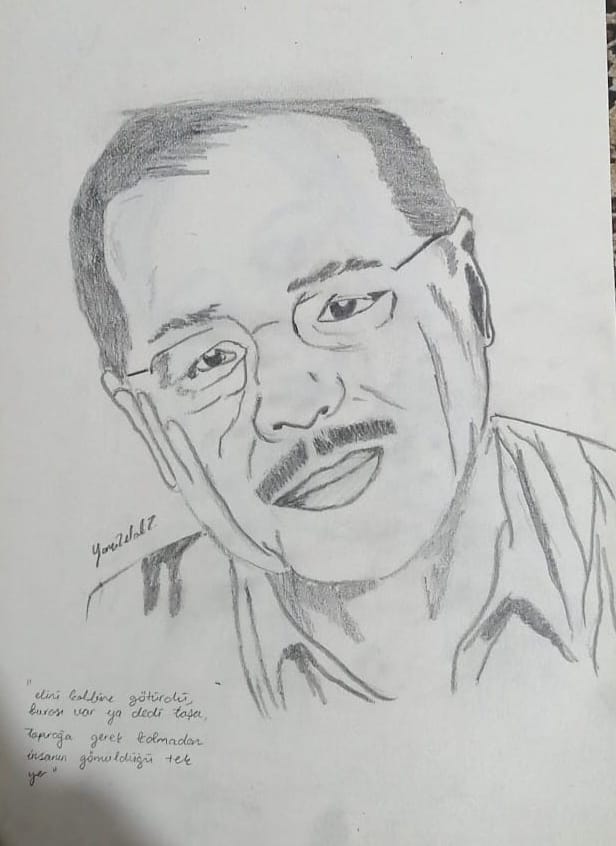 "elini kalbine götürdü,
burası var ya dedi taşa,
toprağa gerek kalmadan
insanın gömüldüğü tek
yer"